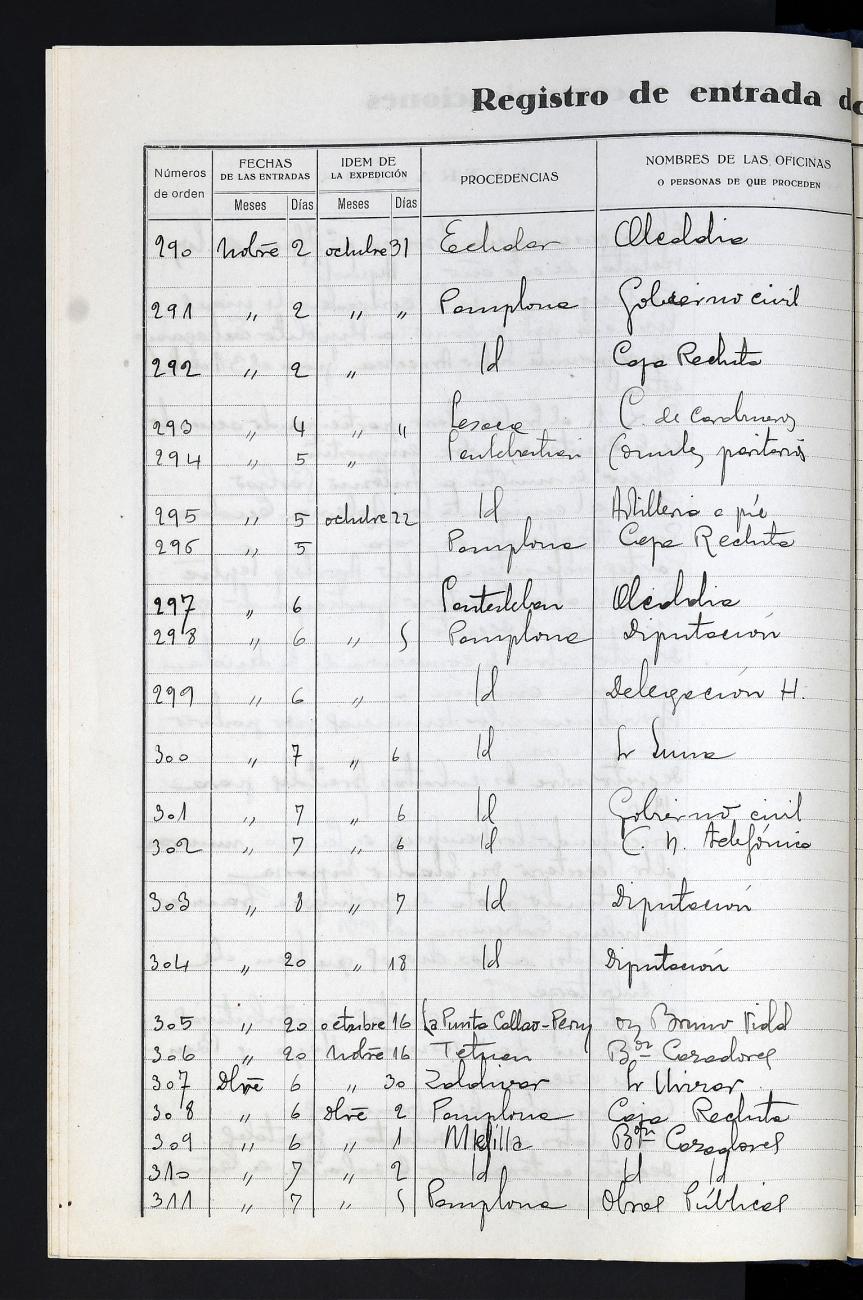 Registro de entrada de
Números de orden FECHAS DE LAS ENTRADAS IDEM DE LA EXPEDICIÓN PROCEDENCIAS NOMBRES DE LAS OFICINAS O PERSONAS DE QUE PROCEDEN
Meses Días Meses Días
290 Nobre 2 octubre 31 Echalar Alcaldia
291 " 2 " " Pamplona Gobierno civil
292 " 2 " Id Caja Recluta
293 " 4 " " Lesaca C. de Carabineros
294 " 5 " Comités paritarios
295 " 5 octubre 22 Id Artilleria a pie
296 " 5 Pamplona Caja Recluta
297 " 6 Santesteban Alcaldia
298 " 6 " 5 Pamplona Diputación
299 " 6 " Id Delegación H.
300 " 7 " 6 Id Sr
301 " 7 " 6 Id Gobierno civil
302 " 7 " 6 Id C. N. Telefónica
303 " 8 " 7 Id Diputación
304 " 20 " 18 Id Diputación
305 " 20 octubre 16 La Punta Callao-Peru Bruno Vidal
306 " 20 Nobre 16 Tetuan Bon Cazadores
307 Dbre 6 " 30 Zaldivar Sr
308 " 6 Dbre 2 Pamplona Caja Recluta
309 " 6 " 1 Melilla Bon Cazadores
310 " 7 " 2 Id Id Id
311 " 7 " 5 Pamplona Obras Públicas